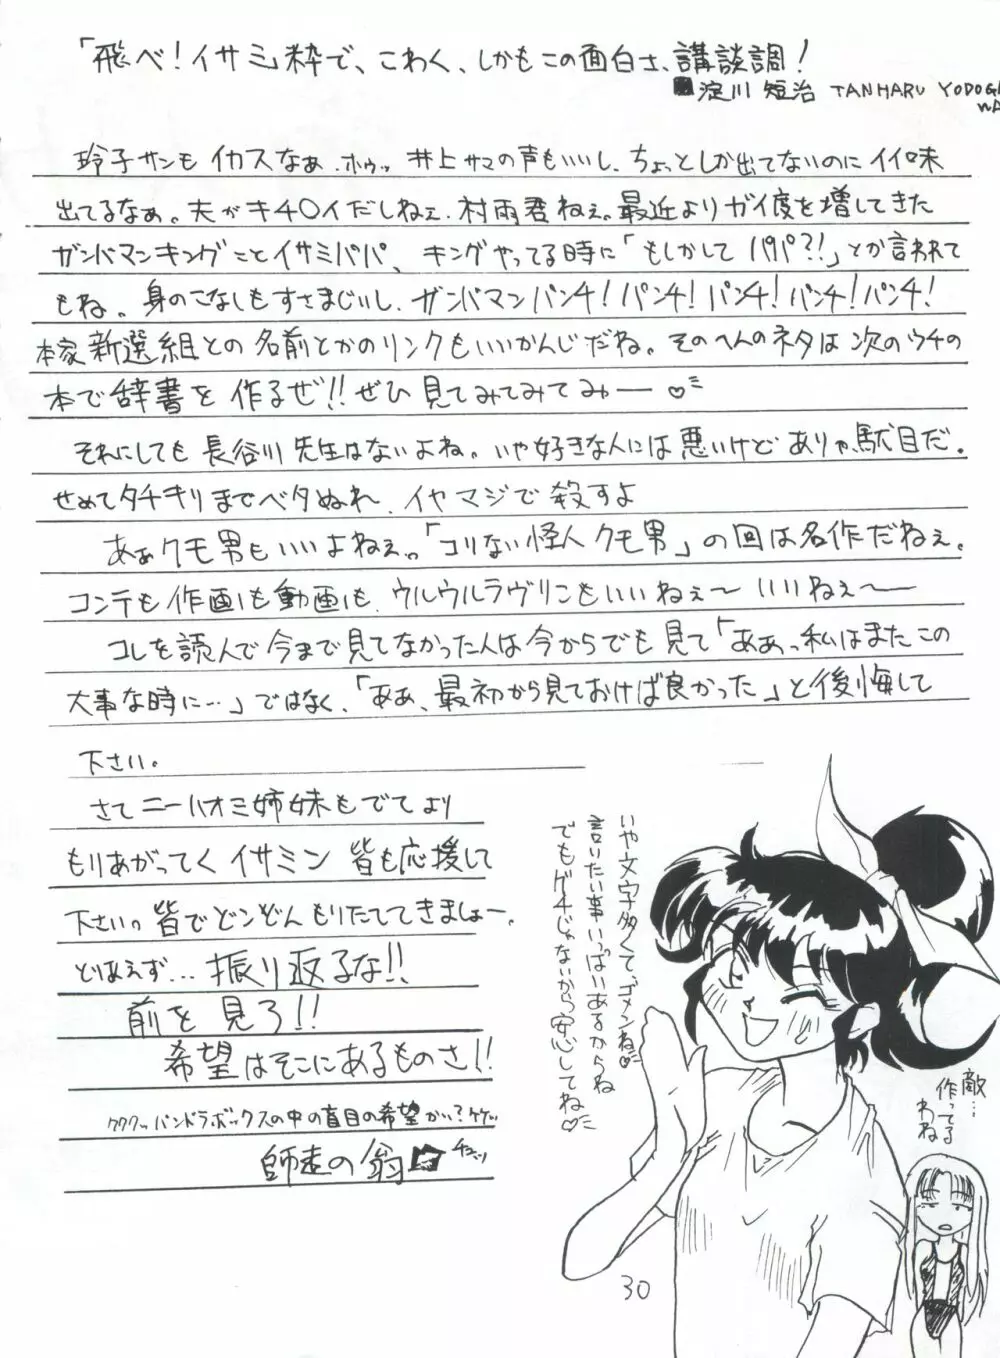 「飛べ!イサミ」粋で、こわく、しかもこの面白さ、講談調!
■淀川 短治 TANHARU YODOGAWA
玲子サンもイカスなぁ.ホゥッ 井上サマの声もいいし、ちょっとしか出てないのにイイ味
出てるなぁ。夫がキ40イだしねぇ.村雨君ねぇ。最近よりガイ度を増してきた
ガンバマンキングことイサミパパ、キングやってる時に「もしかしてパパ?!」とか言われて
もね。身のこなしもすさまじいし.ガンバマンパンチ!パンチ!パンチ!パンチ!パンチ!
本家新選組との名前とかのリンクもいいかんじだね。そのへんのネタは次のウチの
本で辞書を作るぜ!!ぜひ見てみてみてみゅー♡
それにしても長谷川先生はないよね。いや好きな人には悪いけどありゃ、駄目だ。
せめてタチキリまでベタぬれ.イヤマジで殺すよ
あぁクモ男もいいよねぇ。「コリない怪人クモ男」の回は名作だねぇ。
コンテも作画も動画も.ウルウルラヴリンもいいねぇ〜いいねぇ〜
コレを読んで今まで見てなかった人は今からでも見て「ああっ私はまたこの
大事な時に…」ではなく、「ああ、最初から見ておけば良かった」と後悔して
下さい。
さてニーハオミ姉妹もでてより
もりあがってくイサミン 皆も応援して
下さい。皆でどンどんもりたててきましょー。
とりあえず…振り返るな!!
前を見ろ!!
希望はそこにあるものさ!!
ククククッパンドラボックスの中の盲目の希望かい?ケケッ
師走の翁 チュッ
いや文字多くて、ゴメンね♡
言いたい事いっぱいあるからね
でもグチじゃないから安心してね♡
敵…
作ってる
わね
30